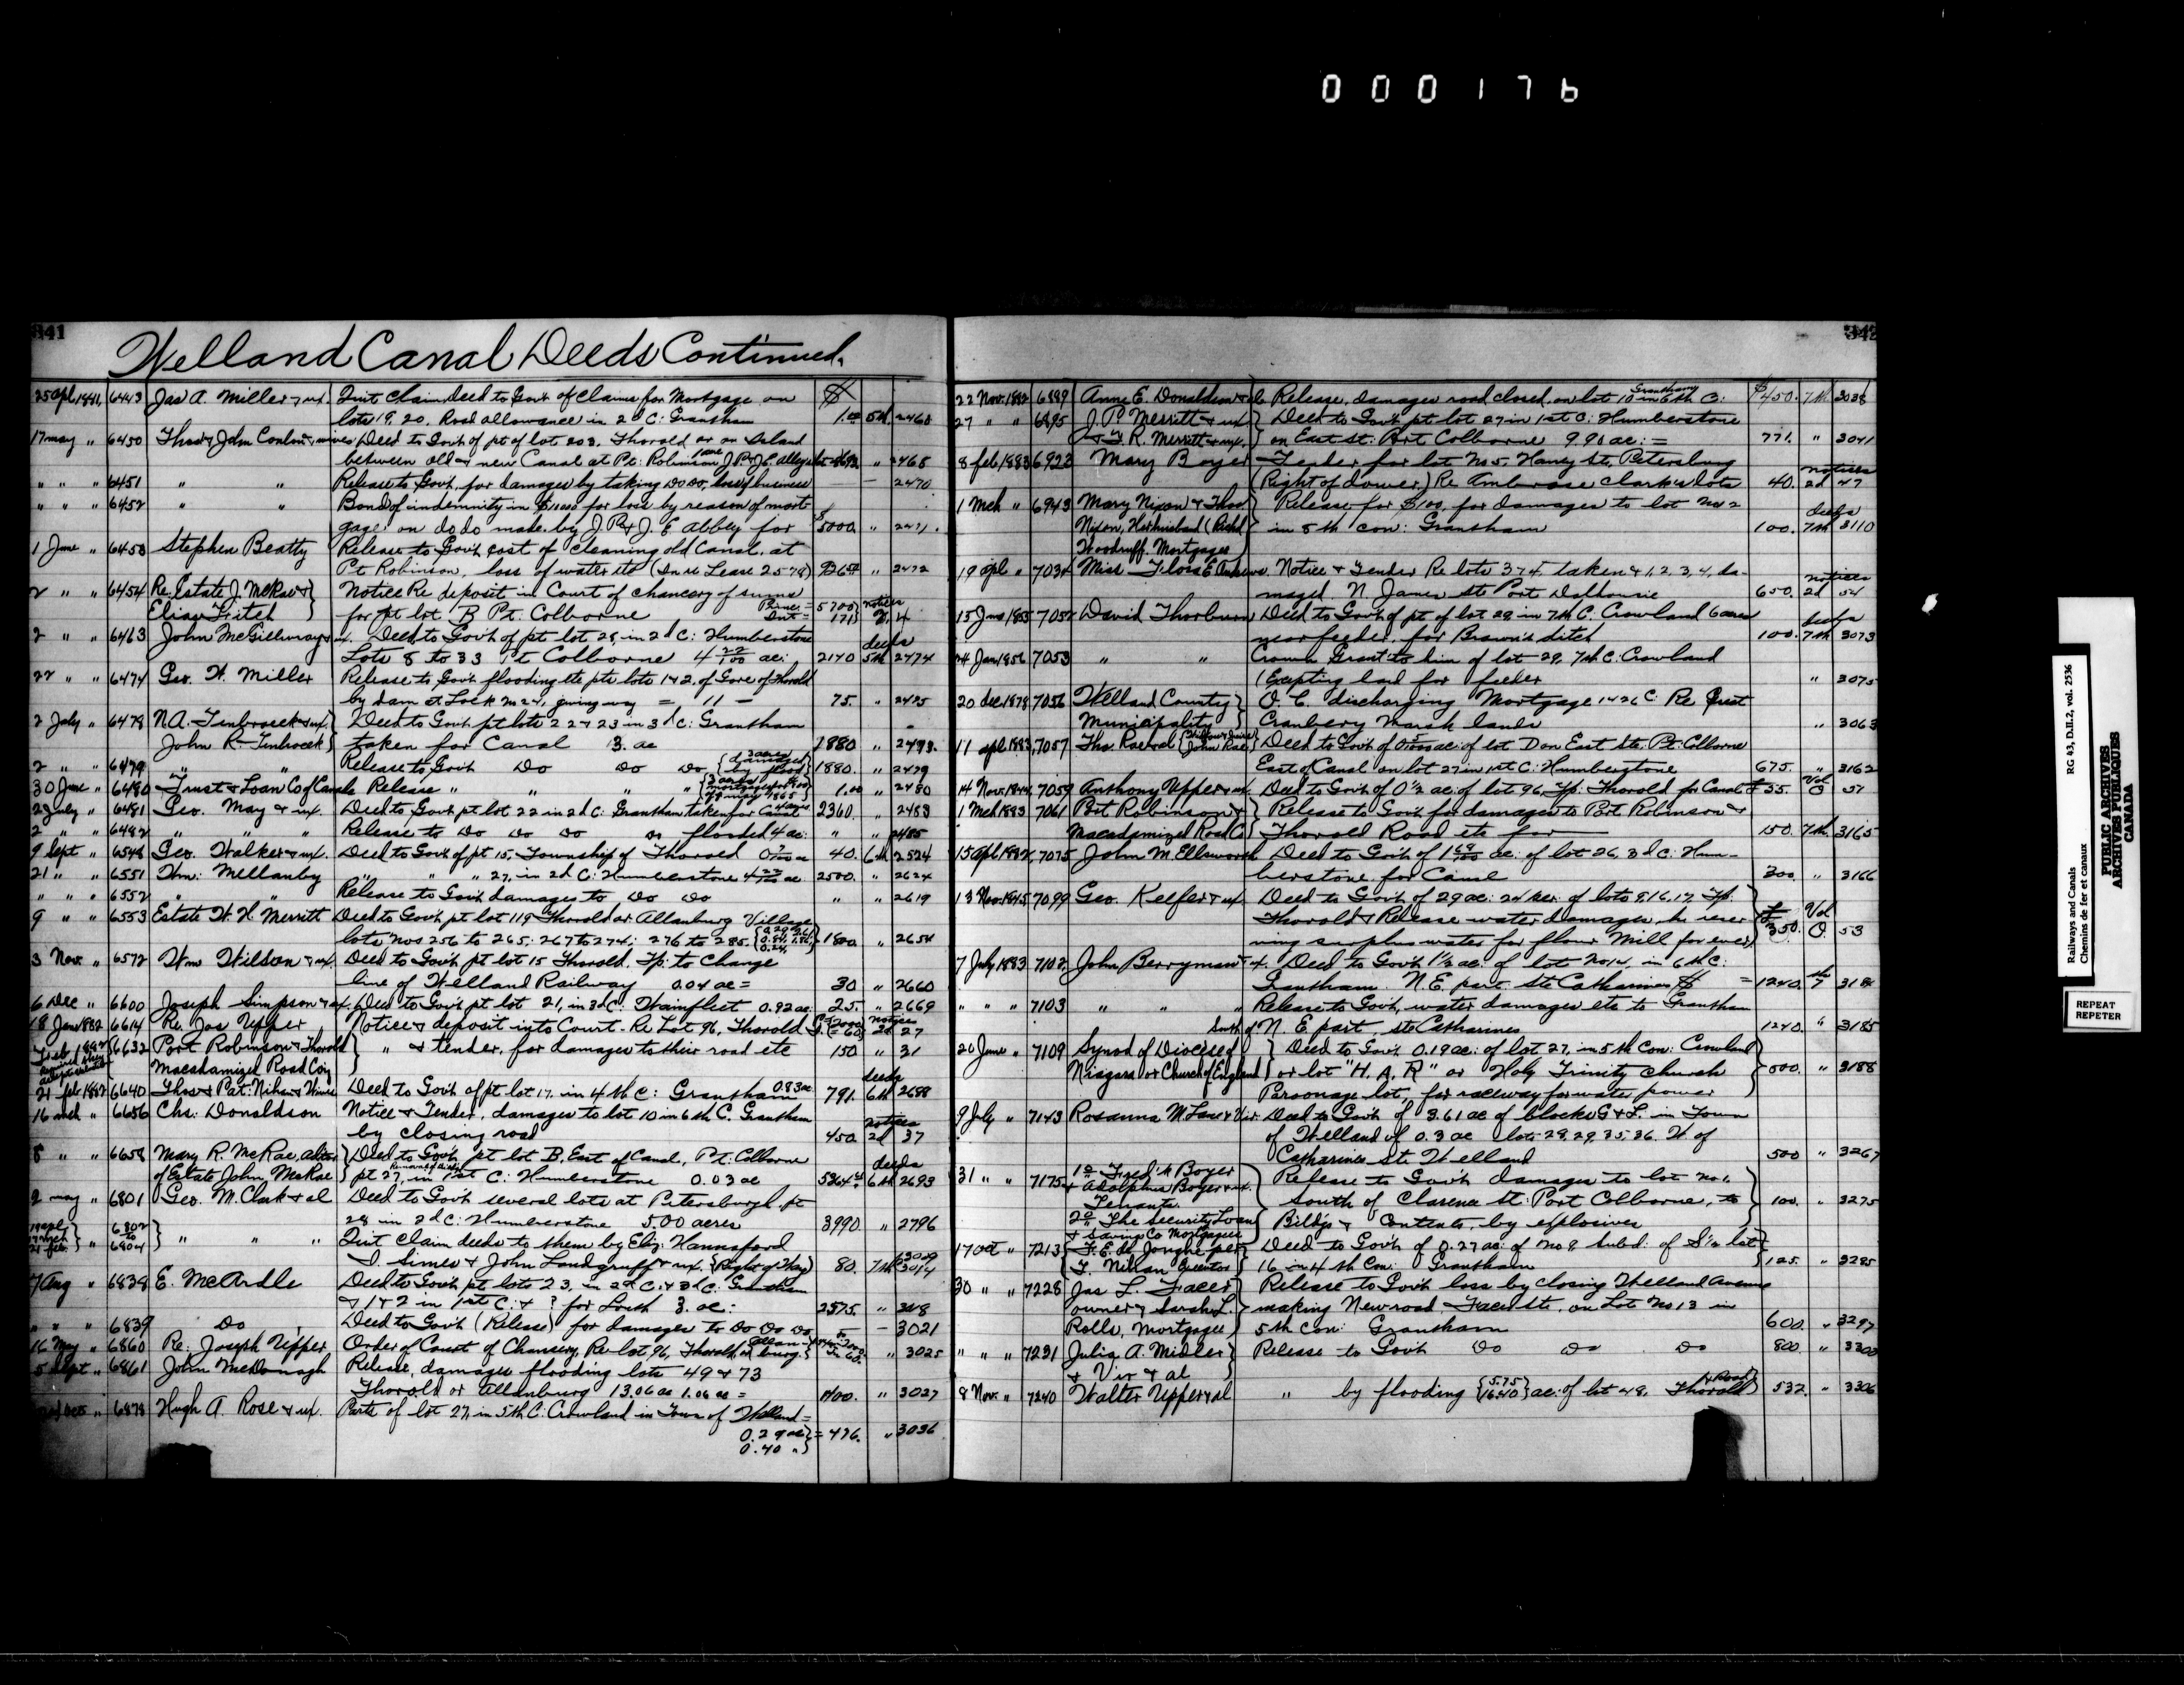 000176
341
Welland Canal Deeds Continued.
25 Apl 1881, 6443 Jas A. Miller & ux Quit Claim Deed to Govt of Claims for Mortgage on $
lots 19, 20, Road allowance in 2d C: Grantham 1.00 5th 2460
17 May " 6450 Thos & John Conlon & wives Deed to Govt of pt of lot 203, Thorold or on Island
between old & new Canal at Pt: Robinson " 2468
" " " 6451 " " Release to Govt. for damages by taking Do Do, loss of business — — 2470
" " " 6452 " " Bond of indemnity in $10000 for loss by reason of mort
gage on do do made by J. P. & J. E. Abbey for $5000. " 2471.
1 June " 6453 Stephen Beatty Release to Govt cost of cleaning old Canal, at
Pt Robinson, loss of water etc (In re Lease 2578) " 2472
2 " " 6454 Re. Estate J. McRae & Notice Re deposit in Court of chancery of sums
Eliza Fitch for pt lot B Pt. Colborne 5700 171 notices 2, 4
2 " " 6463 John McGillivray & ux. Deed to Govt of pt lot 28, in 2d C: Humberstone deeds
Lots 8 to 33 Pt Colborne 4 22/100 ac: 2140 5th 2474
22 " " 6474 Geo. W. Miller Release to Govt flooding etc pts lots 1 & 2, of Gore of Thorold
by dam at Lock No 24, giving way = 11 — 75. " 2475
2 July " 6478 N. A. Tenbroeck & ux, Deed to Govt pt lots 22 & 23 in 3d C: Grantham
John R. Tenbroeck taken for Canal 13. ac 1880 " 2478.
2 " " 6479 " " Release to Govt Do Do Do 3 acres damaged by flood 1880. " 2479
30 June " 6480 Trust & Loan Co of Canada Release " " " " 1.00 " 2480
2 July " 6481 Geo. May & ux. Deed to Govt pt lot 22 in 2d C: Grantham taken for Canal 4 acres 2360. " 2483
2 " " 6482 " " " Release to Do Do Do or flooded 4 ac: " " 2485
9 Sept " 6548 Geo. Walker & ux. Deed to Govt of pt 15, Township of Thorold 40. 6th 2524
21 " " 6551 Wm: Mellanby " " " 27, in 2d C: Humberstone 4 23/100 ac 2500. " 2624
" " " 6552 " " Release to Govt damages to Do Do " " 2619
9 " " 6553 Estate W. H. Merritt Deed to Govt pt lot 119 Thorold or Allanburg Village
lots Nos 256 to 265; 267 to 274; 276 to 285. 1800. " 2654
3 Nov. " 6572 Wm Wilson & ux. Deed to Govt pt lot 15 Thorold. Tp: to change
line of Welland Railway 0.04 ac = 30 " 2660
6 Dec " 6600 Joseph Simpson & ux, Deed to Govt pt lot 21, in 3d C: Wainfleet 0.92 ac 25. " 2669
18 Jany 1882 6614 Re. Jos Upper Notice & deposit into Court. Re Lot 96, Thorold notices 2d 27
Feb 1882 6632 Port Robinson & Thorold " & tender, for damages to their road etc 150 " 31
Macadamized Road Coy
21 Feb 1882 6640 Thos & Pat: Nihan & Wives Deed to Govt of pt lot 17, in 4th C: Grantham 0.83 ac 791. deeds 6th 2688
16 Mch " 6656 Chs. Donaldson Notice & Tender, damages to lot 10 in 6th C. Grantham
by closing road 450 notices 2d 37
8 " " 6658 Mary R. McRae, Deed to Govt pt lot B. East of Canal, Pt: Colborne
of Estate John McRae pt 27, in 1st C: Humberstone 0.03 ac deeds 6th 2693
2 May " 6801 Geo. M. Clark & al Deed to Govt several lots at Petersburgh pt
28 in 2d C: Humberstone 5.00 acres 3990 " 2796
6802 to 6804 " " " Quit claim deeds to them by Eliz: Hannsford
80. 7th 3009 3014
7 Aug " 6838 E. McArdle Deed to Govt pt lots 23, in 2d C: & 3d C: Grantham
& 1 & 2 in 1st C: & ? for Louth 3. ac: 2575. "
" " " 6839 Do Deed to Govt (Release) for damages to Do Do Do — — 3021
16 May " 6860 Re: Joseph Upper Order of Court of Chancery, Re lot 96, Thorold, or Allanburg. " 3025
5 Sept " 6861 John McDonagh Release, damages flooding lots 49 & 73
Thorold or Allanburg 13.06 ac 1.06 ac = 1100. " 3027
" 6878 Hugh A. Rose & ux. Parts of lot 27, in 5th C: Crowland in Town of Welland =
0.29 ac = 476. " 3036
0.40 "
342
22 Nov. 1882 6889 Anne E. Donaldson Release, damages road closed, on lot 10 in 6th C: Grantham $450. 7th.
27 " " 6895 J. P. Merritt & ux Deed to Govt pt lot 27 in 1st C: Humberstone
& T. R. Merritt & ux. on East St: Port Colborne 9.90 ac: = 771. " 3041
8 Feb 1883 6923 Mary Boyer Tender for lot No 5, Haney St, Petersburg
(Right of dower,) Re Ambrose Clark's lots 40. notices 2d 47
1 Mch " 6943 Mary Nixon & Thos Release for $100, for damages to lot No 2
Nixon, Her husband (Richd in 8th Con: Grantham 100. deeds 7th 3110
Woodruff. Mortgagee
19 Apl " Miss Flora E. Notice & Tender Re lots 3 & 4, taken & 1, 2, 3, 4, da-
maged. N. James St: Port Dalhousie 650. notices 2d 54
15 June 1855 7052 David Thorburn Deed to Govt of pt of lot 29 in 7th C. Crowland 6 acres
near feeder, for Brown's ditch 100. deeds 7th 3073
24 Jan 1856 7053 " " Crown Grant to him of lot 29, 7th C: Crowland
(Excepting land for feeder " 3075
20 Dec 1878 7056 Welland County O. C. discharging Mortgage 1426 C: Re Great
Municipality Cranberry Marsh lands " 3063
11 Apl 1883, 7057 Deed to Govt of lot D on East Ste, Pt: Colborne
East of Canal on lot 27 in 1st C: Humberstone 675. " 3162
14 Nov. 1844, 7059 Anthony Upper & ux. Deed to Govt of 0 1/2 ac: of lot 96, Tp: Thorold for Canal £35. Vol O 57
1 Mch 1883 7061 Port Robinson & Release to Govt for damages to Port Robinson &
Macadamized Road Co Thorold Road etc for 150. 7th. 3165
15 Apl 1882, 7075 John M. Ellsworth Deed to Govt of 1 69/100 ac: of lot 26, 3d C: Hum-
berstone for Canal 300. " 3166
13 Nov. 1845 7099 Geo. Keefer & ux Deed to Govt of 29 ac: of lots 9, 16, 17, Tp:
Thorold & Release water damages, he reser
ving surplus water for flour Mill for ever £350. Vol O. 53
7 July 1883 7102 John Berryman & ux. Deed to Govt 1 1/2 ac: of lot No 14, in 6th C:
Grantham. N. E. part St Catharines $ = 1240. 7th
" " " 7103 " " Release to Govt, water damages etc to Grantham
South of N. E. part, St Catharines 1240. " 3185
26 June " 7109 Synod of Diocese of Deed to Govt 0.19 ac: of lot 27, in 5th Con: Crowland
Niagara or Church of England or lot "H. A. R" or Holy Trinity Church 500. " 3188
Parsonage lot, for raceway for water power
9 July " 7143 Rosanna McLane & Vir Deed to Govt of 3.61 ac of blocks G & L. in Town
of Welland of 0.3 ac lots 28, 29, 35, 36. W of
Catharines St: Welland 500 " 3267
31 " " 7175 1o Fred'k Boyer Release to Govt damages to lot No 1.
& Adolphus Boyer & ux. South of Clarence St: Port Colborne, to 100. " 3275
Tenants
2o The Security Loan Bild'gs & Contents, by explosives
& Savings Co Mortgagees
17 Oct " 7213 F. E. de Jonghe per Deed to Govt of 0.27 ac: of No 9 Subd: of S'ly lot
T. Nihan Executor 16 in 4th Con: Grantham 125. " 3285
30 " " 7228 Jas L. Facer Release to Govt loss by closing Welland Avenue
owner & Sarah L. making New road Facer St. on Lot No 13 in
Rolls, Mortgagee 5th Con: Grantham 600. " 3297
" " " 7231 Julia A. Miller Release to Govt Do Do Do 800. " 3300
& Vir & al
8 Nov. " 7240 Walter Upper & al " by flooding 5.75 16.40 ac: of lot 48, Thorold & Road 532. " 3306
Railways and Canals RG 43, D.II.2, vol. 2536
Chemins de fer et canaux
PUBLIC ARCHIVES
ARCHIVES PUBLIQUES
CANADA
REPEAT
REPETER